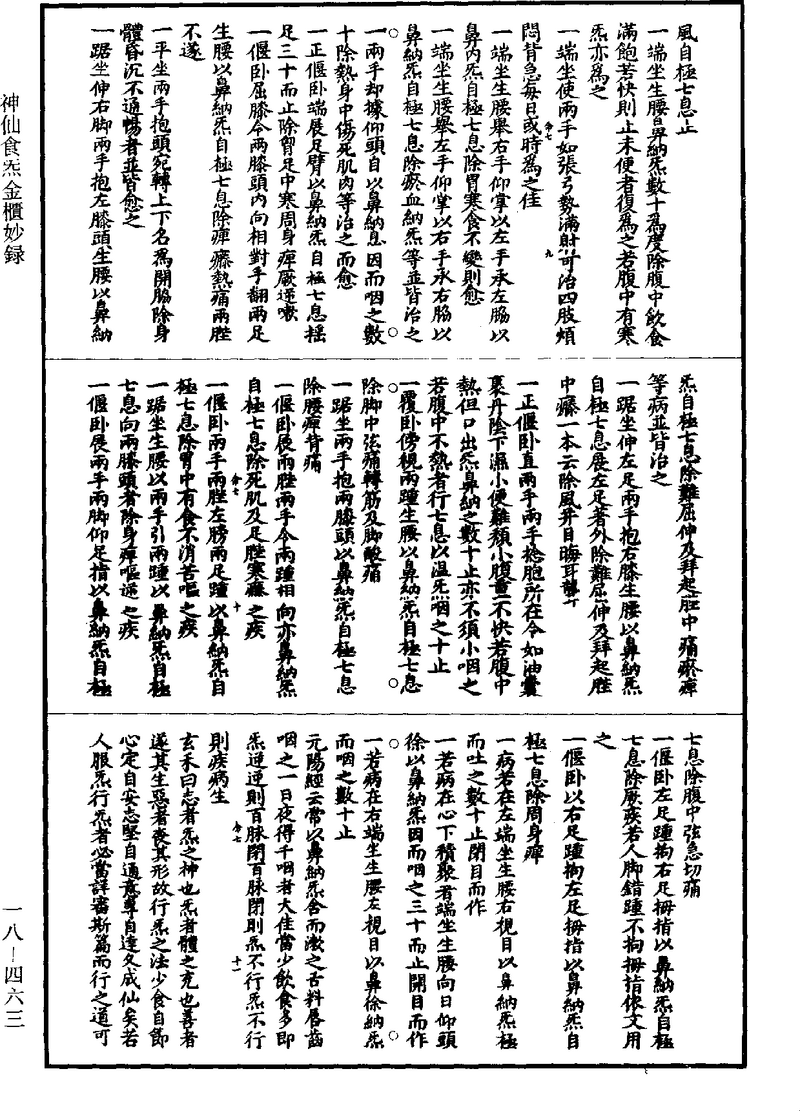 風自極七息止
一端坐生腰以鼻納炁數十爲度除腹中飲食
滿飽若快則止未便者復爲之若腹中有寒
炁亦爲之
一端坐使兩手如張弓勢滿射可治四肢煩
悶背急每日或時爲之佳
一端坐生腰舉右手仰掌以左手承左脇以
鼻內炁自極七息除胃寒食不變則愈
一端坐生腰舉左手仰掌以右手承右脇以
鼻納炁自極七息除瘀血納炁等並皆治之
一兩手却據仰頭自以鼻納息因而咽之數
十除熱身中傷死肌肉等治之而愈
一正偃卧端展足臂以鼻納炁自極七息搖
足三十而止除胷足中寒周身痺厥逆嗽
一偃卧屈膝令兩膝頭内向相對手翻兩足
生腰以鼻納炁自極七息除痺瘀熱痛兩脛
不遂
一平坐兩手抱頭宛轉上下名爲開脇除身
體昏沉不通暢者並皆愈之
一踞坐伸右脚兩手抱左膝頭生腰以鼻納
炁自極七息除難屈伸及拜起脛中痛瘀痺
等病並皆治之
一踞坐伸左足兩手抱右膝生腰以鼻納炁
自極七息展左足著外除難屈伸及拜起脛
中癢一本云除風并目晦耳聾
一正偃卧直兩手兩手捻胞所在令如油囊
裹丹陰下濕小便難頹小腹重不快若腹中
熱但口出炁鼻納之數十止亦不須小咽之
若腹中不熱者行七息以温炁咽之十止
一覆卧傍視兩踵生腰以鼻納炁自極七息
除脚中弦痛轉筋及脚酸痛
一踞坐兩手抱兩膝頭以鼻納炁自極七息
除腰痺背痛
一偃卧展兩脛兩手令兩踵相向亦鼻納炁
自極七息除死肌及足脛寒瘀之疾
一偃卧兩手兩脛左膀兩足踵以鼻納炁自
極七息除胃中有食不消苦嘔之疾
一踞坐生腰以兩手引兩踵以鼻納炁自極
七息向兩膝頭者除身痺嘔逆之疾
一偃卧展兩手兩脚仰足指以鼻納炁自極
七息除腹中弦急切痛
一偃卧左足踵拘右足拇指以鼻納炁自極
七息除厥疾若人脚錯踵不拘拇指依文用
之
一偃卧以右足踵拘左足拇指以鼻納炁自
極七息除周身痺
一病若在左端坐生腰右視目以鼻納炁極
而吐之數十止閉目而作
一若病在心下積聚者端坐生腰向日仰頭
徐以鼻納炁因而咽之三十而止開目而作
一若病在右端坐生腰左視目以鼻徐納炁
而咽之數十止
元陽經云常以鼻納炁含而漱之舌料唇齒
咽之一日夜得千咽者大佳當少飲食多即
炁逆逆則百脉閉百脉閉則炁不行炁不行
則疾病生
玄禾曰志者炁之神也炁者體之充也善者
遂其生惡者喪其形故行炁之法少食自節
心定自安志堅自通意專自達久成仙矣若
人服炁行炁者必當詳審斯篇而行之道可
神仙食炁金櫃妙録
一八—四六三